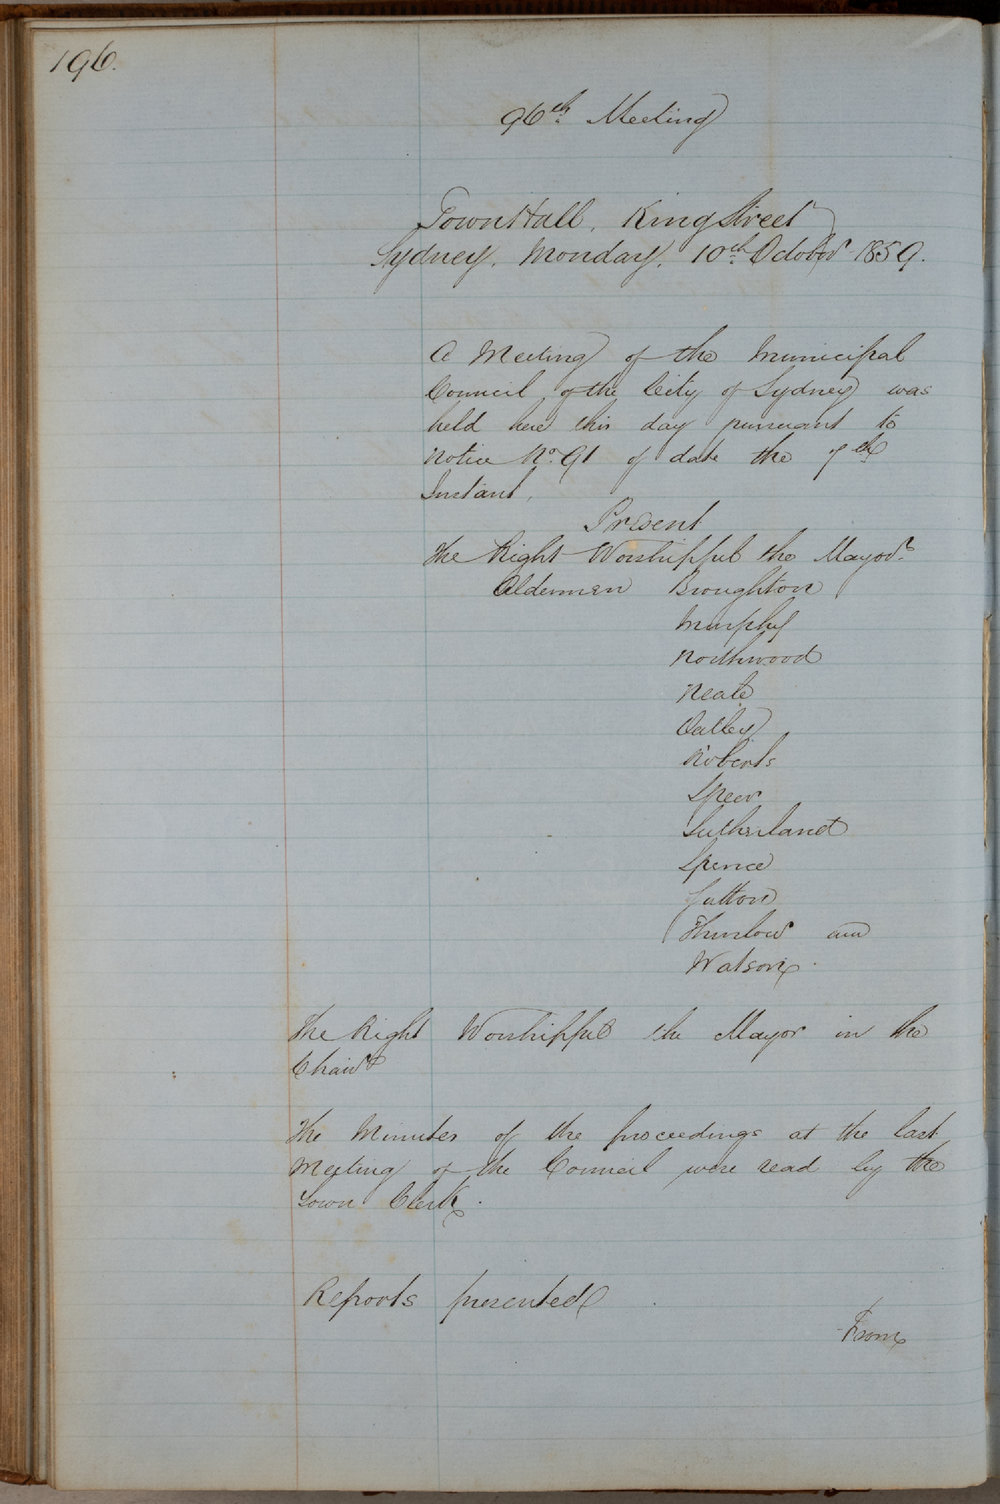 196.
96th Meeting
Town Hall, King Street
Sydney, Monday, 10th October 1859.
A Meeting of the Municipal
Council of the City of Sydney was
held here this day pursuant to
notice No. 91 of date the 7th
Instant,
Present
The Right Worshipful the Mayor
Aldermen Broughton
Murphy
Northwood
Neale
Oatley
Roberts
Speer
Sutherland
Spence
Sutton
Thurlow and
Watson.
The Right Worshipful the Mayor in the
Chair
The Minutes of the proceedings at the last
Meeting of the Council were read by the
Town Clerk.
Reports presented
From